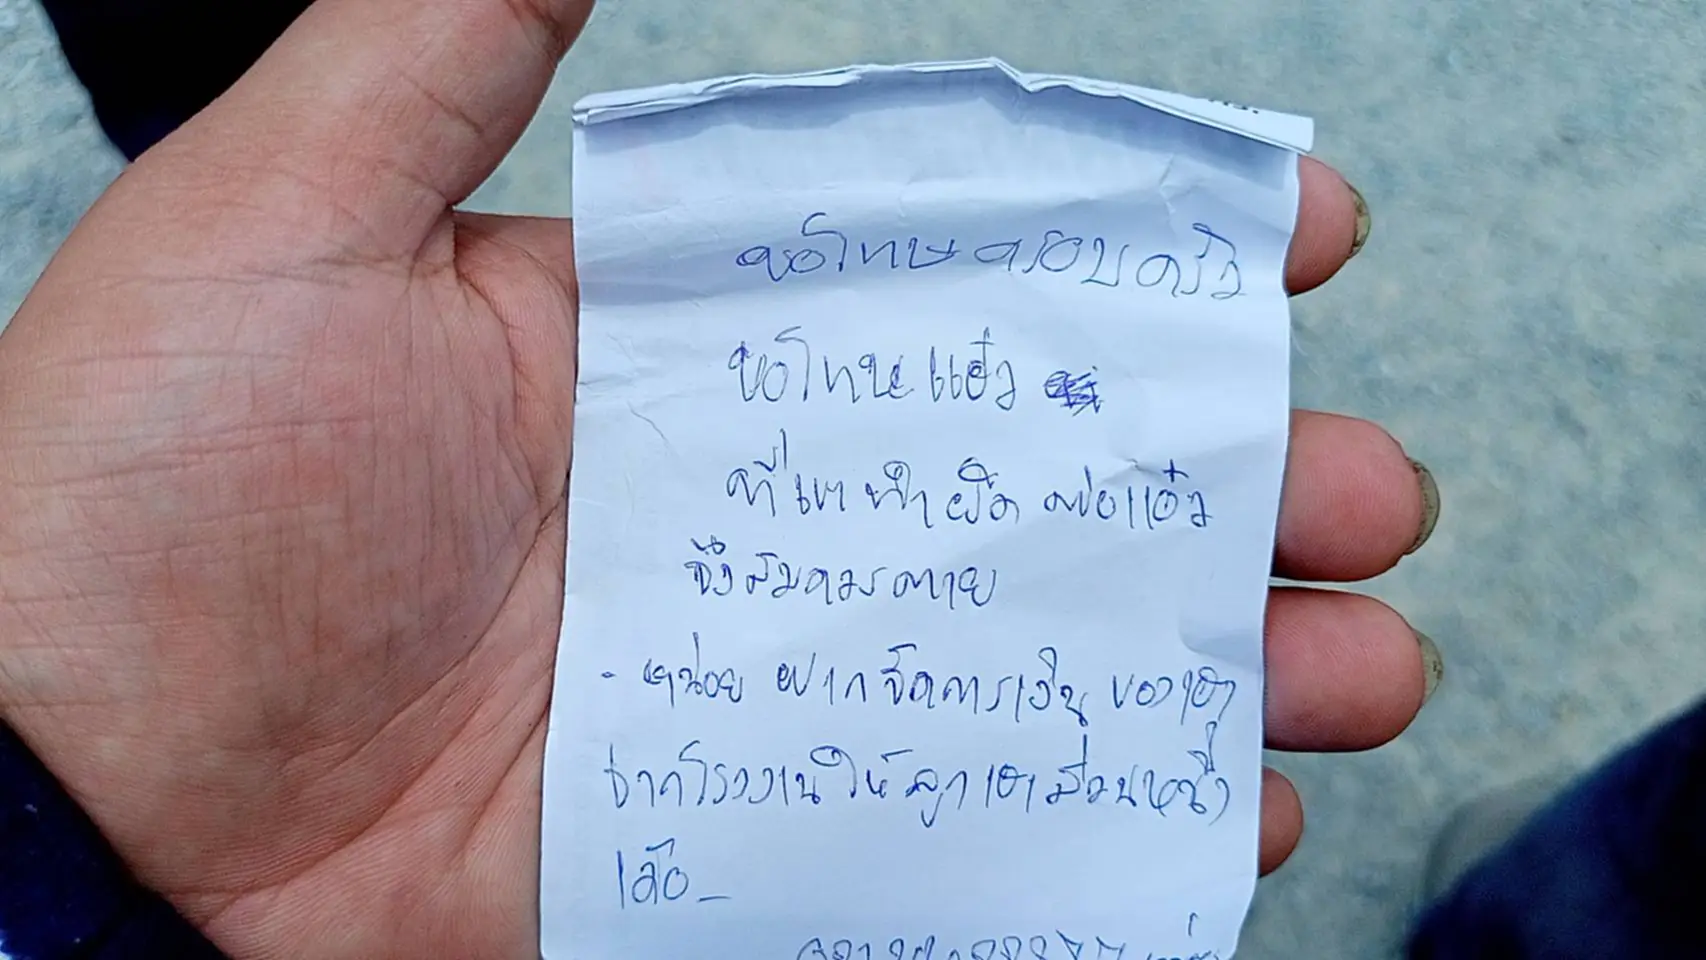 ขอโทษครอบครัว
ขอโทษแอ๋ว
ที่เขาทำผิดต่อแอ๋ว
จึงสมควรตาย
- หน่อย ฝากจัดการเงินของเขา
จากโรงงานให้ลูกเขาส่วนหนึ่ง
เด้อ_